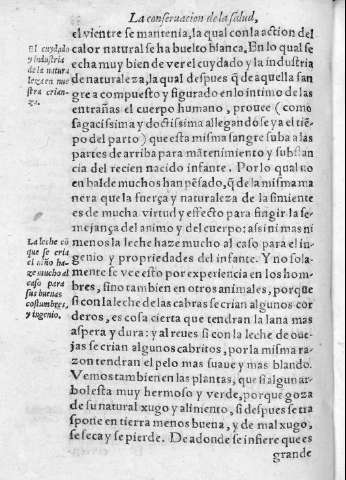 La conseruacion de la salud,
el vientre se mantenia, la qual con la action del
calor natural se ha buelto blanca. En lo qual se
echa muy bien de ver el cuydado y la industria
de naturaleza, la qual despues q̃ de aquella san
gre a compuesto y figurado en lo intimo de las
entrañas el cuerpo humano, prouee (como
sagacissima y doctissima allegandose ya el tiẽ
po del parto) que esta misma sangre suba a las
partes de arriba para mãtenimiento y substan
cia del recien nacido infante. Por lo qual no
en balde muchos han pẽsado, q̃ de la misma ma
nera que la fuerça y naturaleza de la simiente
es de mucha virtud y effecto para fingir la se-
mejança del animo y del cuerpo: assi ni mas ni
menos la leche haze mucho al caso para el in-
genio y propriedades del infante. Y no sola-
mente se vee esto por experiencia en los hom-
bres, sino tambien en otros animales, porque
si con la leche de las cabras se crian algunos cor
deros, es cosa cierta que tendran la lana mas
aspera y dura: y al reues si con la leche de oue-
jas se crian algunos cabritos, por la misma ra-
zon tendran el pelo mas suaue y mas blando.
Vemos tambien en las plantas, que si algun ar-
bol esta muy hermoso y verde, porque goza
de su natural xugo y alimento, si despues se tra
spone en tierra menos buena, y de mal xugo,
se seca y se pierde. De adonde se infiere que es
grande
El cuydado
y industria
de la natura
leza en nue
stra crian-
ça.
La leche cõ
que se cria
el niño ha-
ze mucho al
caso para
sus buenas
costumbres,
y ingenio.